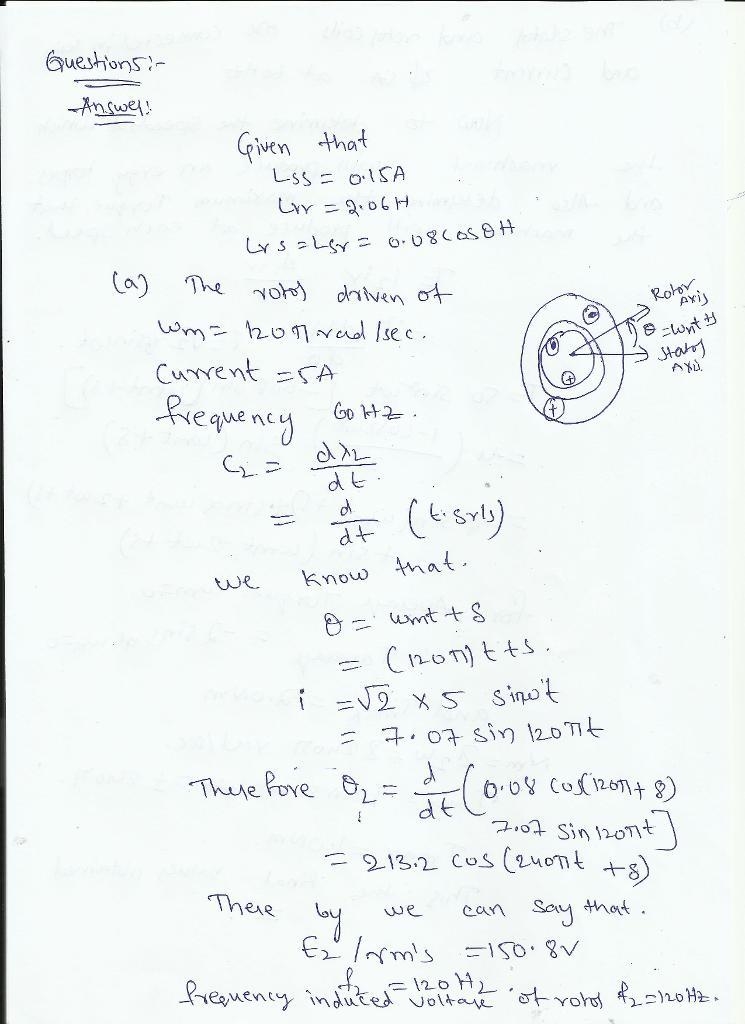 Questions:-
Answer:
Given that
Lss = 0.15A
Lrr = 2.06H
Lrs = Lsr = 0.08 cosθ H
(a) The rotor driven of
Wm = 120π rad/sec.
Current = 5A
frequency 60 Hz.
Rotor Axis
θ = wmt + δ
Stator Axis
e2 = dλ2/dt
= d/dt (
we know that.
θ = wmt + δ
= (120π) t + δ.
i = √2 × 5 sin wt
= 7.07 sin 120πt
Therefore θ2 = d/dt (0.08 cos(120π + δ)
7.07 sin 120πt]
= 213.2 cos (240πt + δ)
There by we can say that.
E2 / rm's = 150.8V
f2 = 120 Hz
frequency induced voltage of rotor f2 = 120 Hz.